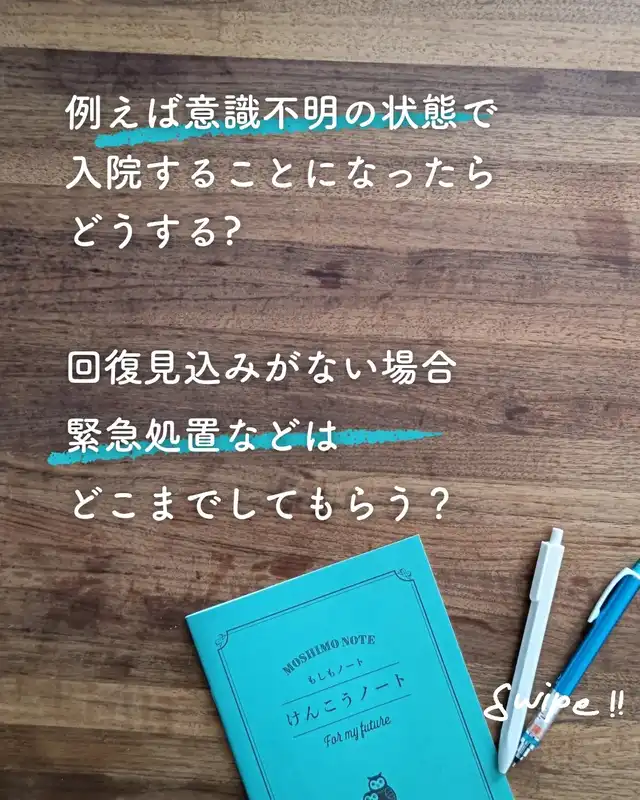 例えば意識不明の状態で
入院することになったら
どうする?
回復見込みがない場合
緊急処置などは
どこまでしてもらう？
MOSHIMO NOTE
もしもノート
けんこうノート
For my future
Swipe!!